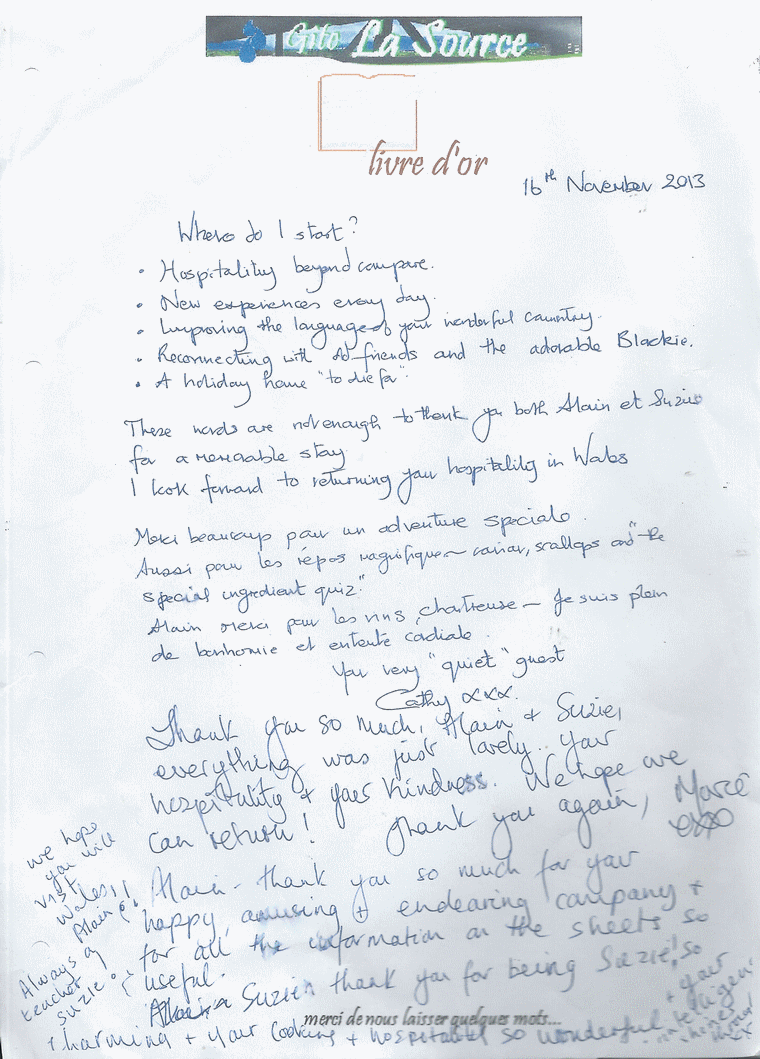 Gîte La Source
livre d'or
16th November 2013
Where do I start?
• Hospitality beyond compare.
• New experiences every day.
• Improving the language of your wonderful country.
• Reconnecting with old friends and the adorable Blackie.
• A holiday home "to die for".
These words are not enough to thank you both Alain et Suzie
for a memorable stay
I look forward to returning your hospitality in Wales
Merci beaucoup pour un adventure speciale.
Aussi pour les répas magnifique – caviar, scallops and "the
special ingredient quiz."
Alain merci pour les vins, chartreuse – Je suis plein
de bonhomie et entente cordiale.
Your very "quiet" guest
Cathy xxx.
Thank you so much, Alain + Suzie,
everything was just lovely.. your
hospitality + your kindness. We hope we
can return! Thank you again, Marcé
xxo
we hope
you will
visit
Wales!!
Alain
Alain - thank you so much for your
happy, amusing + endearing company +
for all the information on the sheets so
useful.
Always a
teacher!
Suzie
Suzie thank you for being Suzie! so
charming + your cooking + hospitality so wonderful + your
intelligence
shines
merci de nous laisser quelques mots...